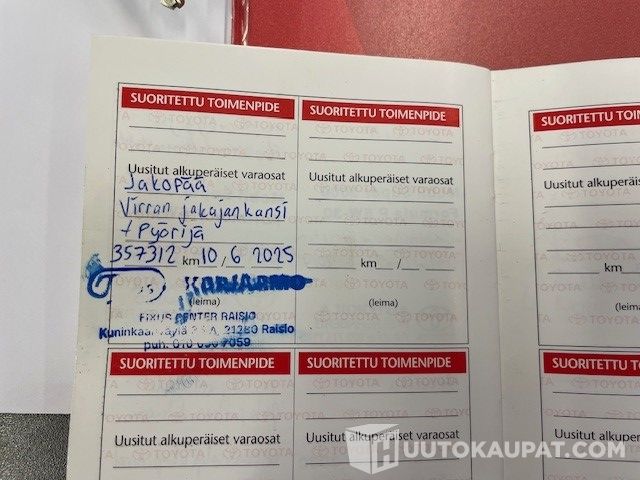 SUORITETTU TOIMENPIDE
Uusitut alkuperäiset varaosat
Jakopää
Virran jakajan kansi
+ Pyörijä
357312 km 10, 6 2025
(leima)
FIXUS CENTER RAISIO
21280 Raisio
puh. 010
SUORITETTU TOIMENPIDE
Uusitut alkuperäiset varaosat
km / 
(leima)
SUORITETTU TOIM
Uusitut alkuperäise
km
(leima
SUORITETTU TOIMENPIDE
Uusitut alkuperäiset varaosat
SUORITETTU TOIMENPIDE
Uusitut alkuperäiset varaosat
SUORITETTU TOIM
Uusitut
TOYOTA
HUUTOKAUPAT.COM